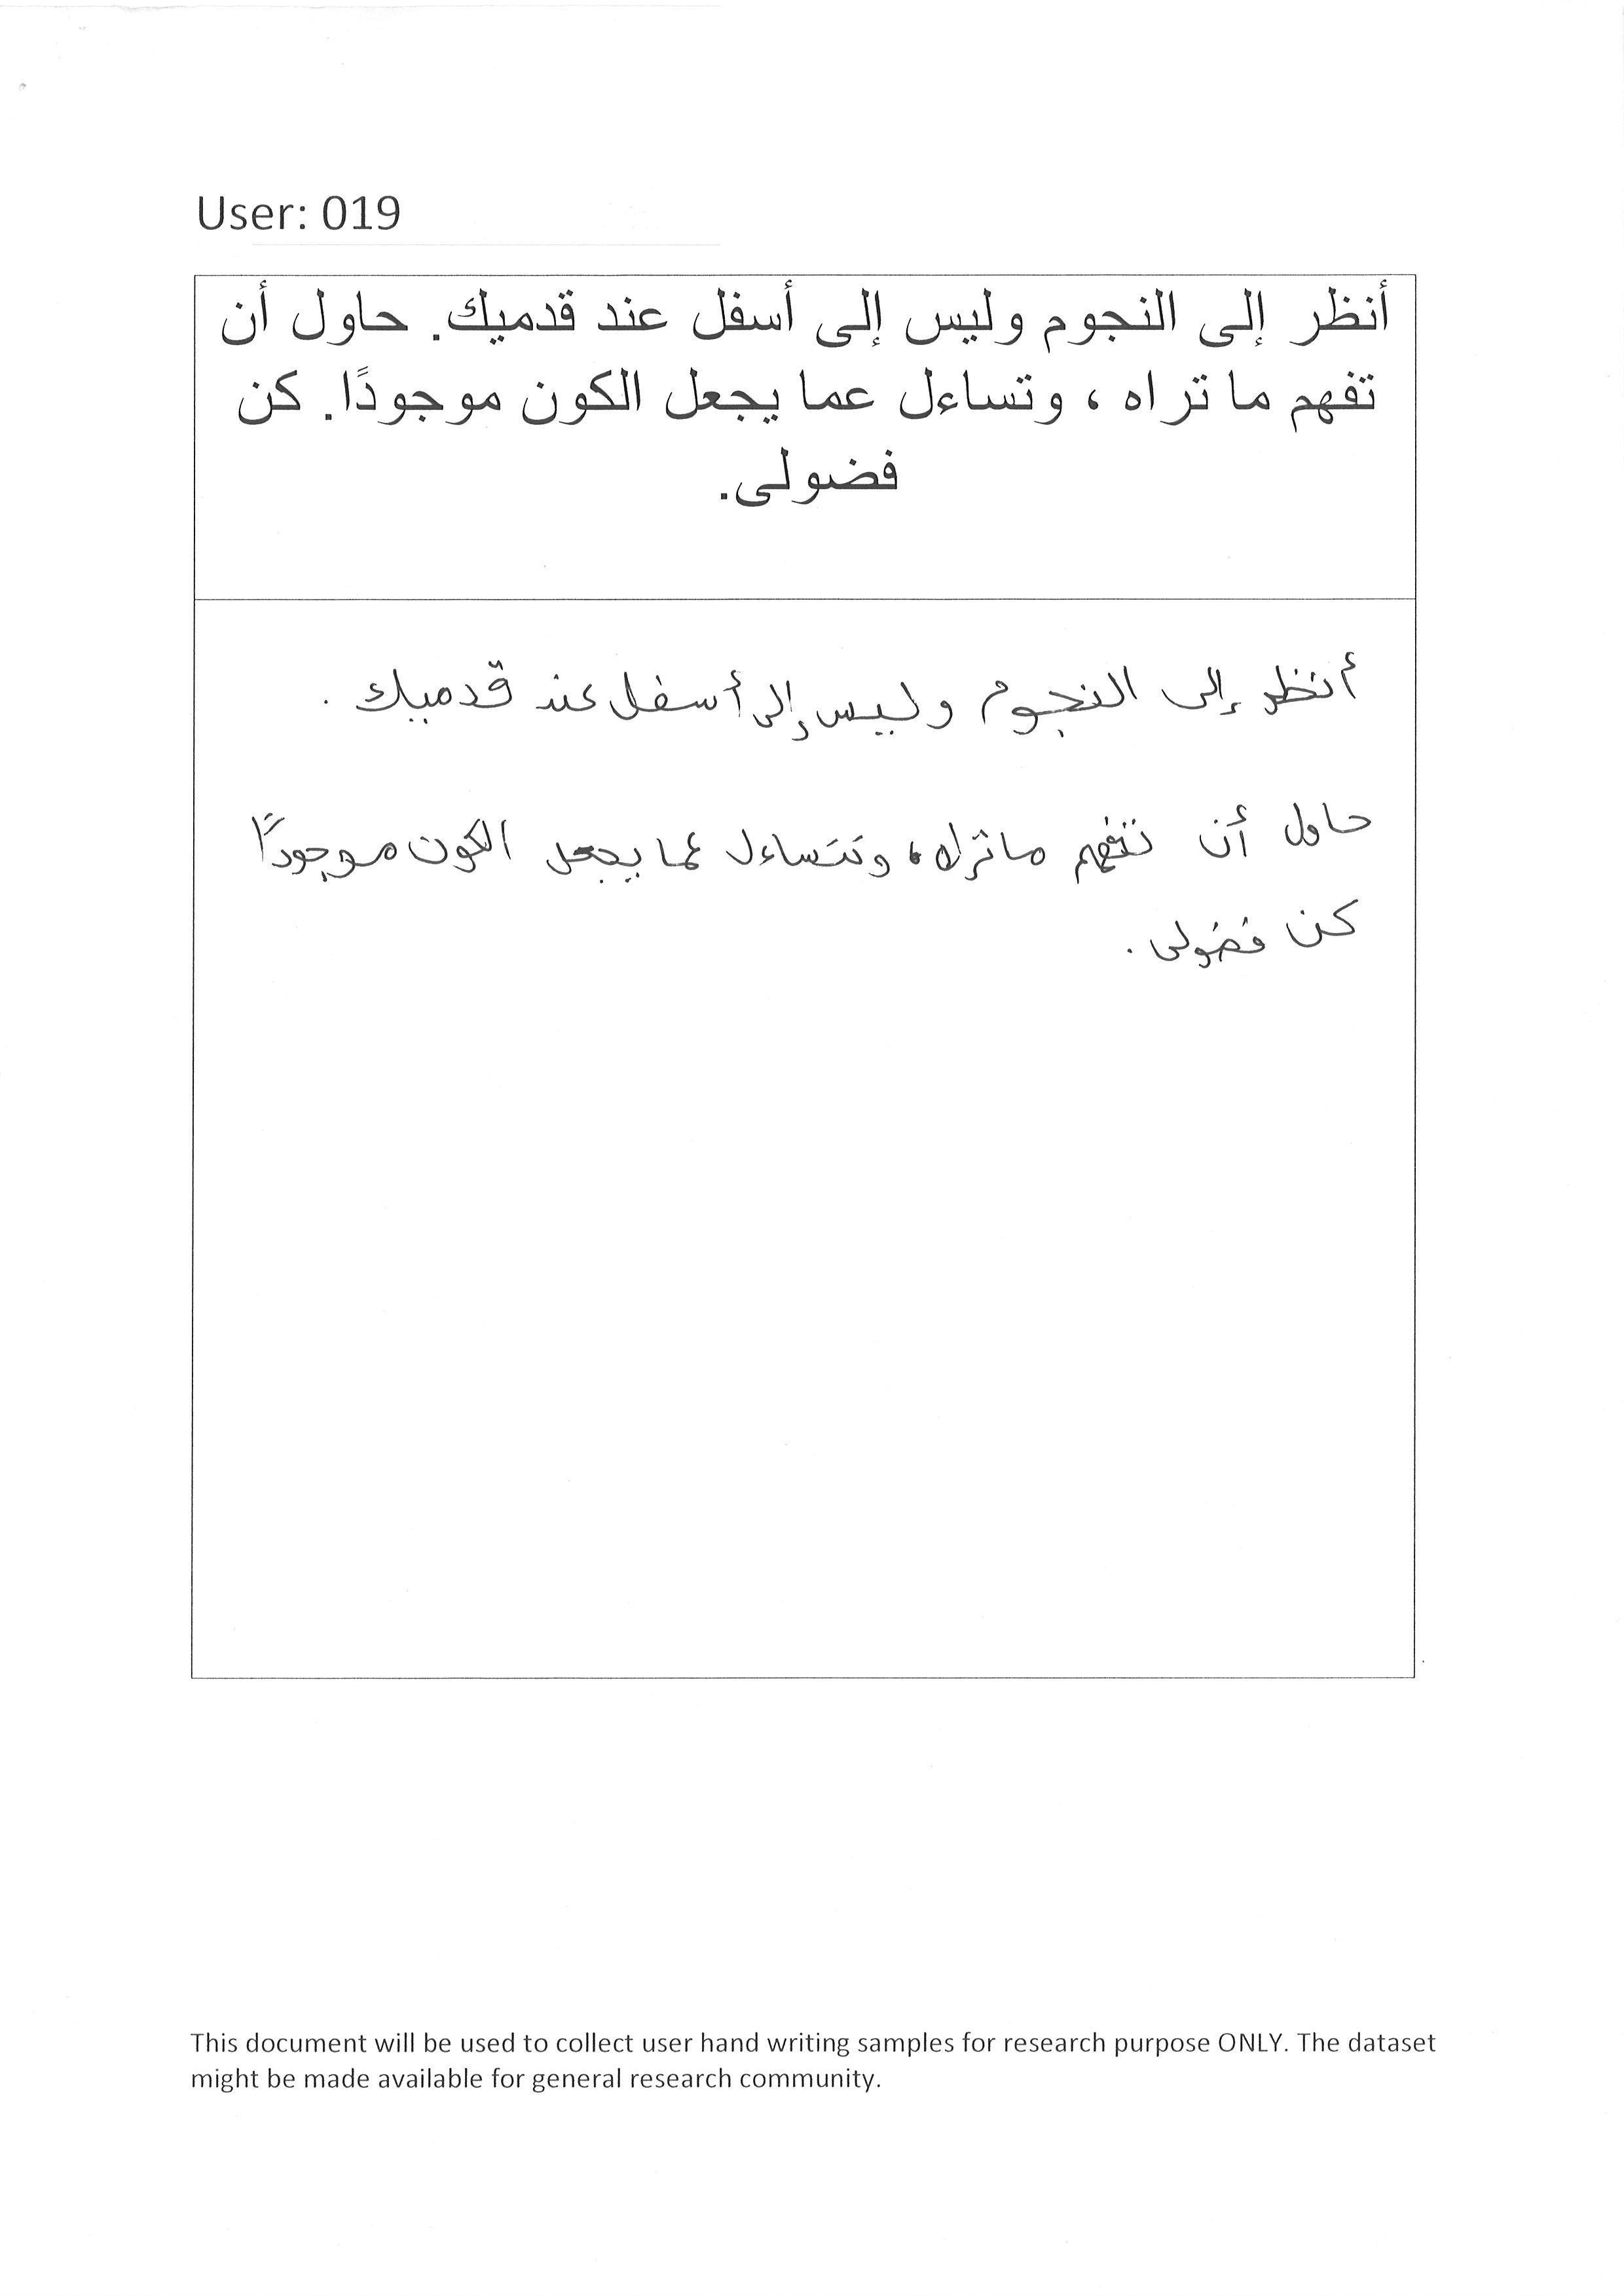 User: 019
أنظر إلى النجوم وليس إلى أسفل عند قدميك. حاول أن
تفهم ما تراه ، وتساءل عما يجعل الكون موجودًا. كن
فضولى.
أنظر إلى النجوم وليس إلى أسفل عند قدميك .
حاول أن تتفهم ما تراه ، وتتساءل عما يجعل الكون موجودًا
كن فضولى .
This document will be used to collect user hand writing samples for research purpose ONLY. The dataset
might be made available for general research community.